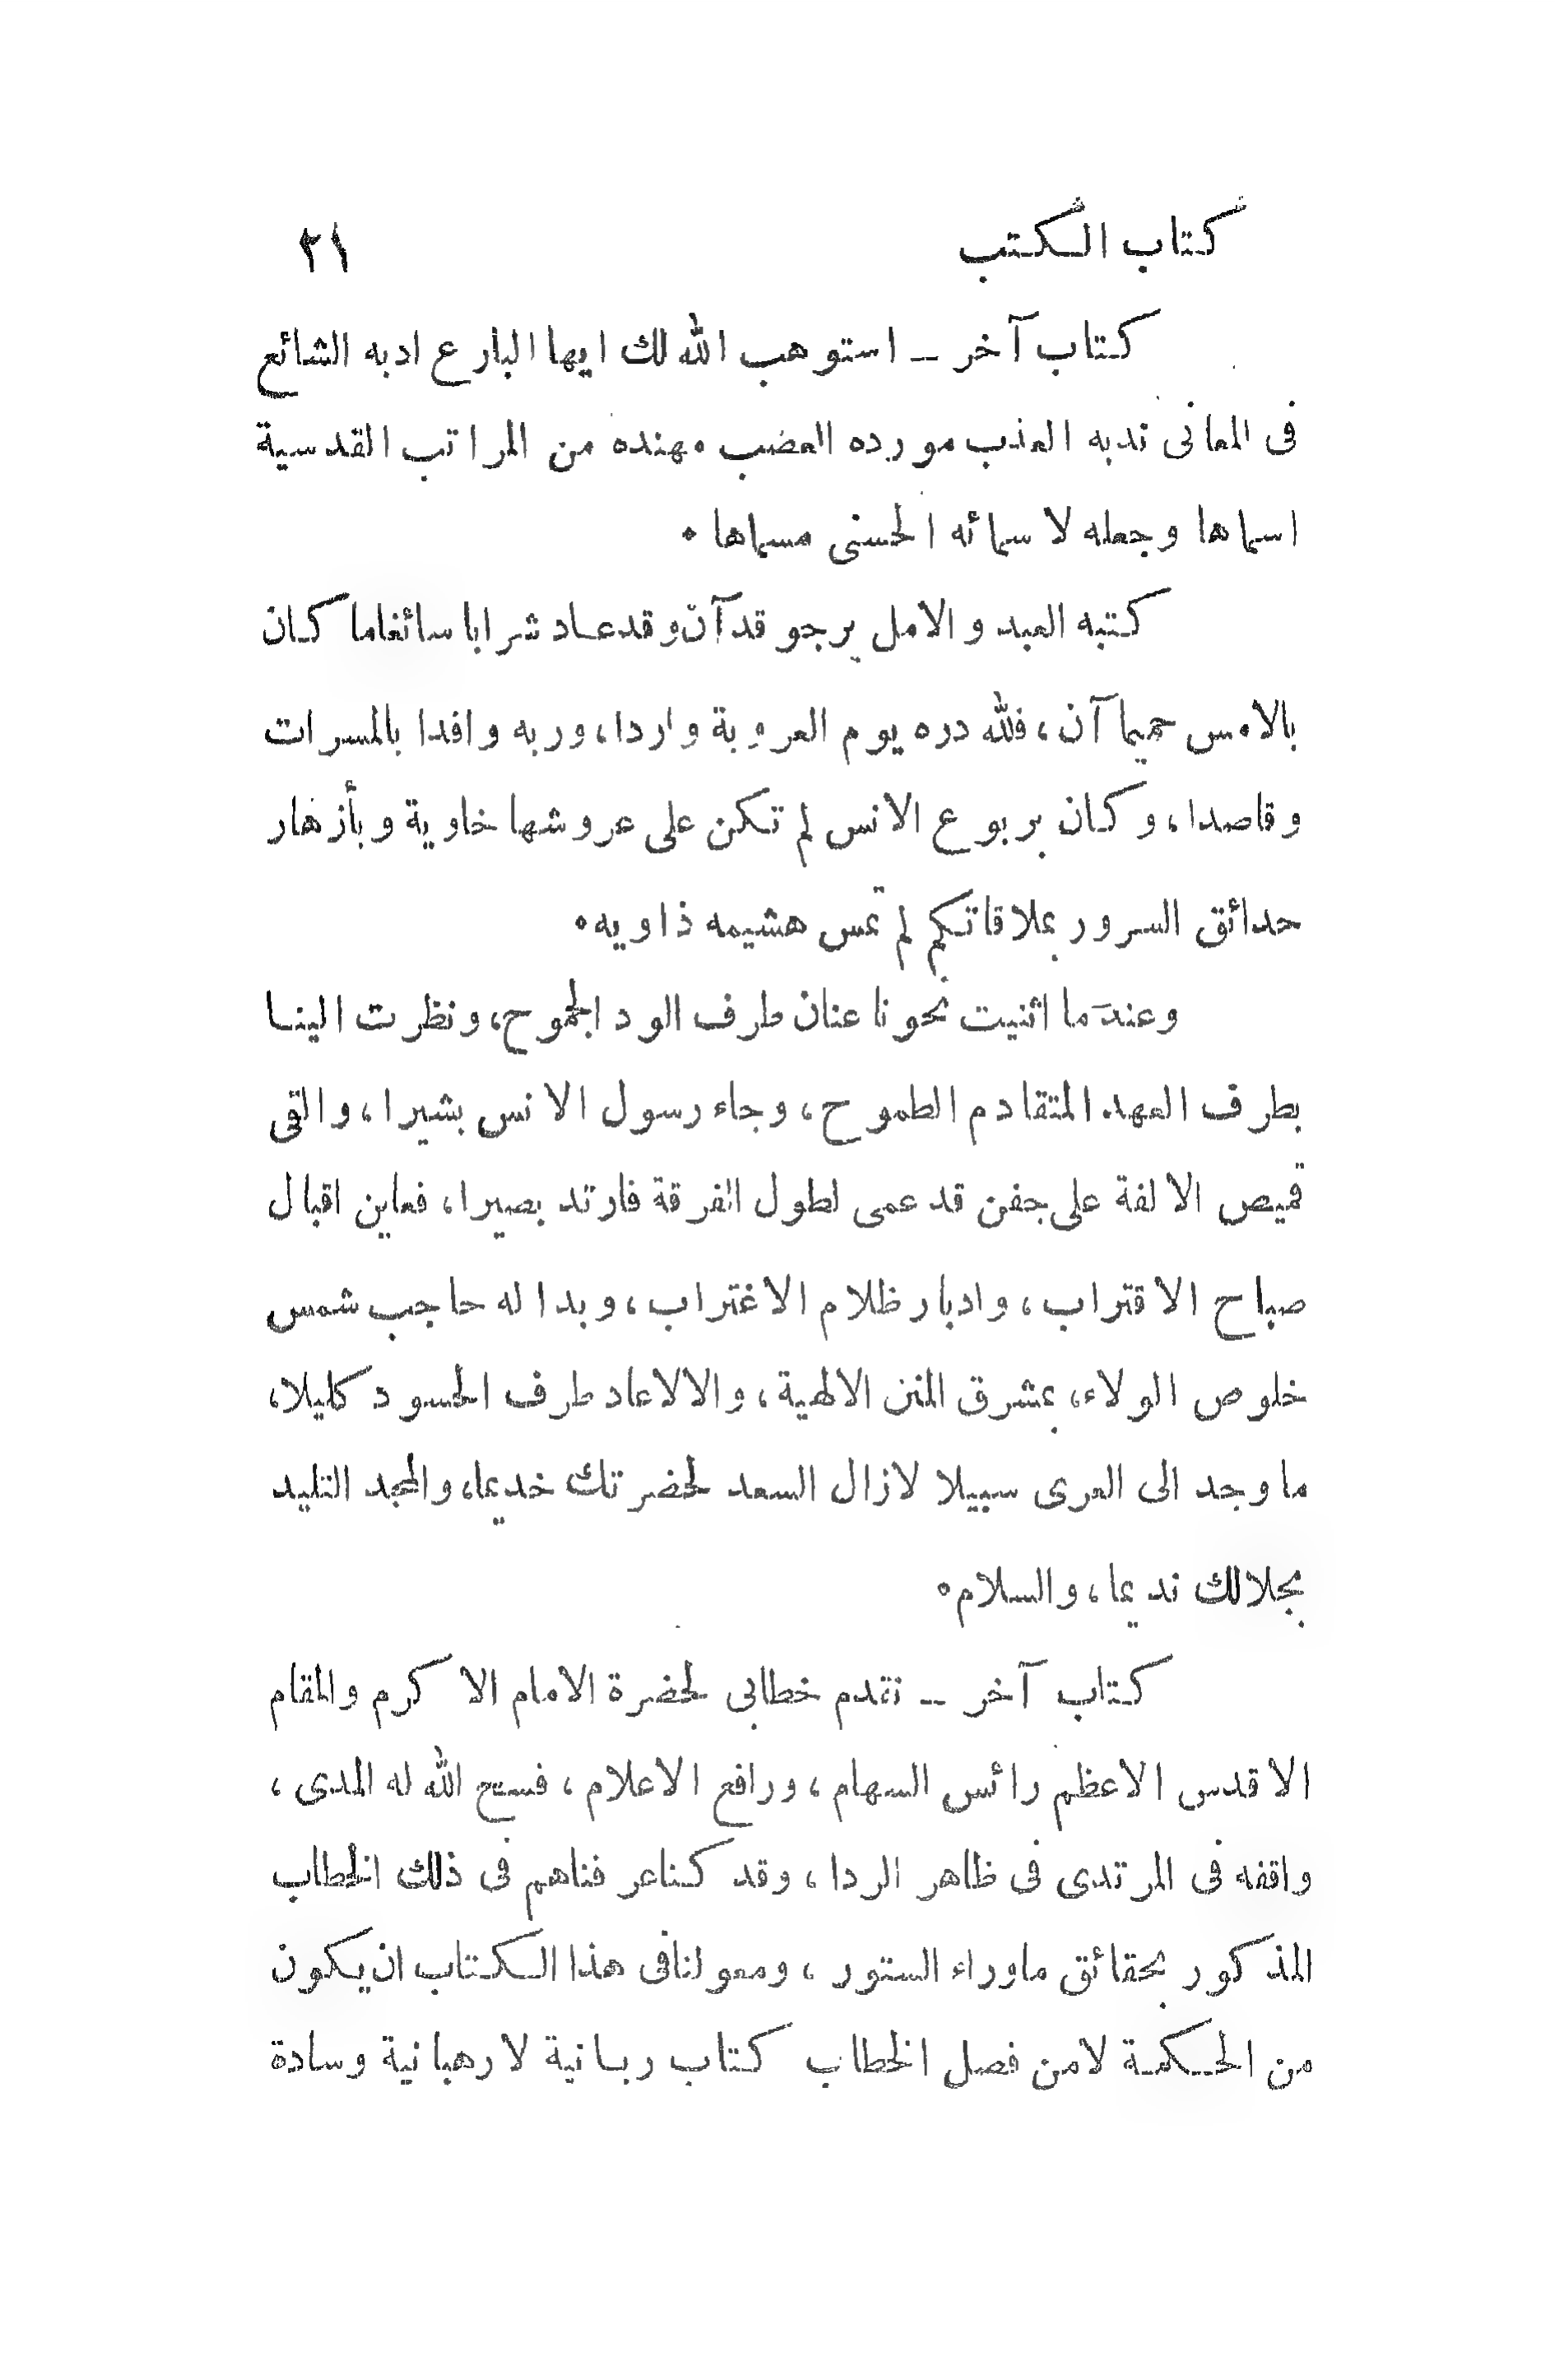 كتاب الكتب ٢١
كتاب آخر – استوهب الله لك ايها البارع ادبه الشائع
فى المعانى ندبه العذب مورده العضب مهنده من المراتب القدسية
اسماها وجعله لاسمائه الحسنى مسماها .
كتبه العبد والامل يرجو قد آن وقد عاد شرابا سائغاما كان
بالامس حميما آن، فلله دره يوم العروبة واردا، وربه وافدا بالمسرات
وقاصدا، وكان بربوع الانس لم تكن على عروشها خاوية وبأزهار
حدائق السرور بملاقاتكم لم تمس هشيمه ذاويه.
وعندما اثنيت نحونا عنان طرف الود الجموح، ونظرت الينا
بطرف العهد المتقادم الطموح، وجاء رسول الانس بشيرا، والقى
قميص الالفة على جفن قد عمى لطول الفرقة فارتد بصيرا، فعاين اقبال
صباح الاقتراب، وادبار ظلام الاغتراب، وبدا له حاجب شمس
خلوص الولاء، بمشرق المنن الالهية، والالاعاد طرف الحسود كليلا،
ماوجد الى العرى سبيلا لازال السعد لحضرتك خديما، والمجد التليد
بجلالك نديما، والسلام.
كتاب آخر – تقدم خطابى لحضرة الامام الاكرم والمقام
الاقدس الاعظم رائس السهام، ورافع الاعلام، فسح الله له المدى،
واقفه فى المرتدى فى ظاهر الردا، وقد كناعرفناهم فى ذلك الخطاب
المذكور بحقائق ماوراء الستور، ومعولنافى هذا الكتاب ان يكون
من الحكمة لامن فصل الخطاب كتاب ربانية لارهبانية وسادة